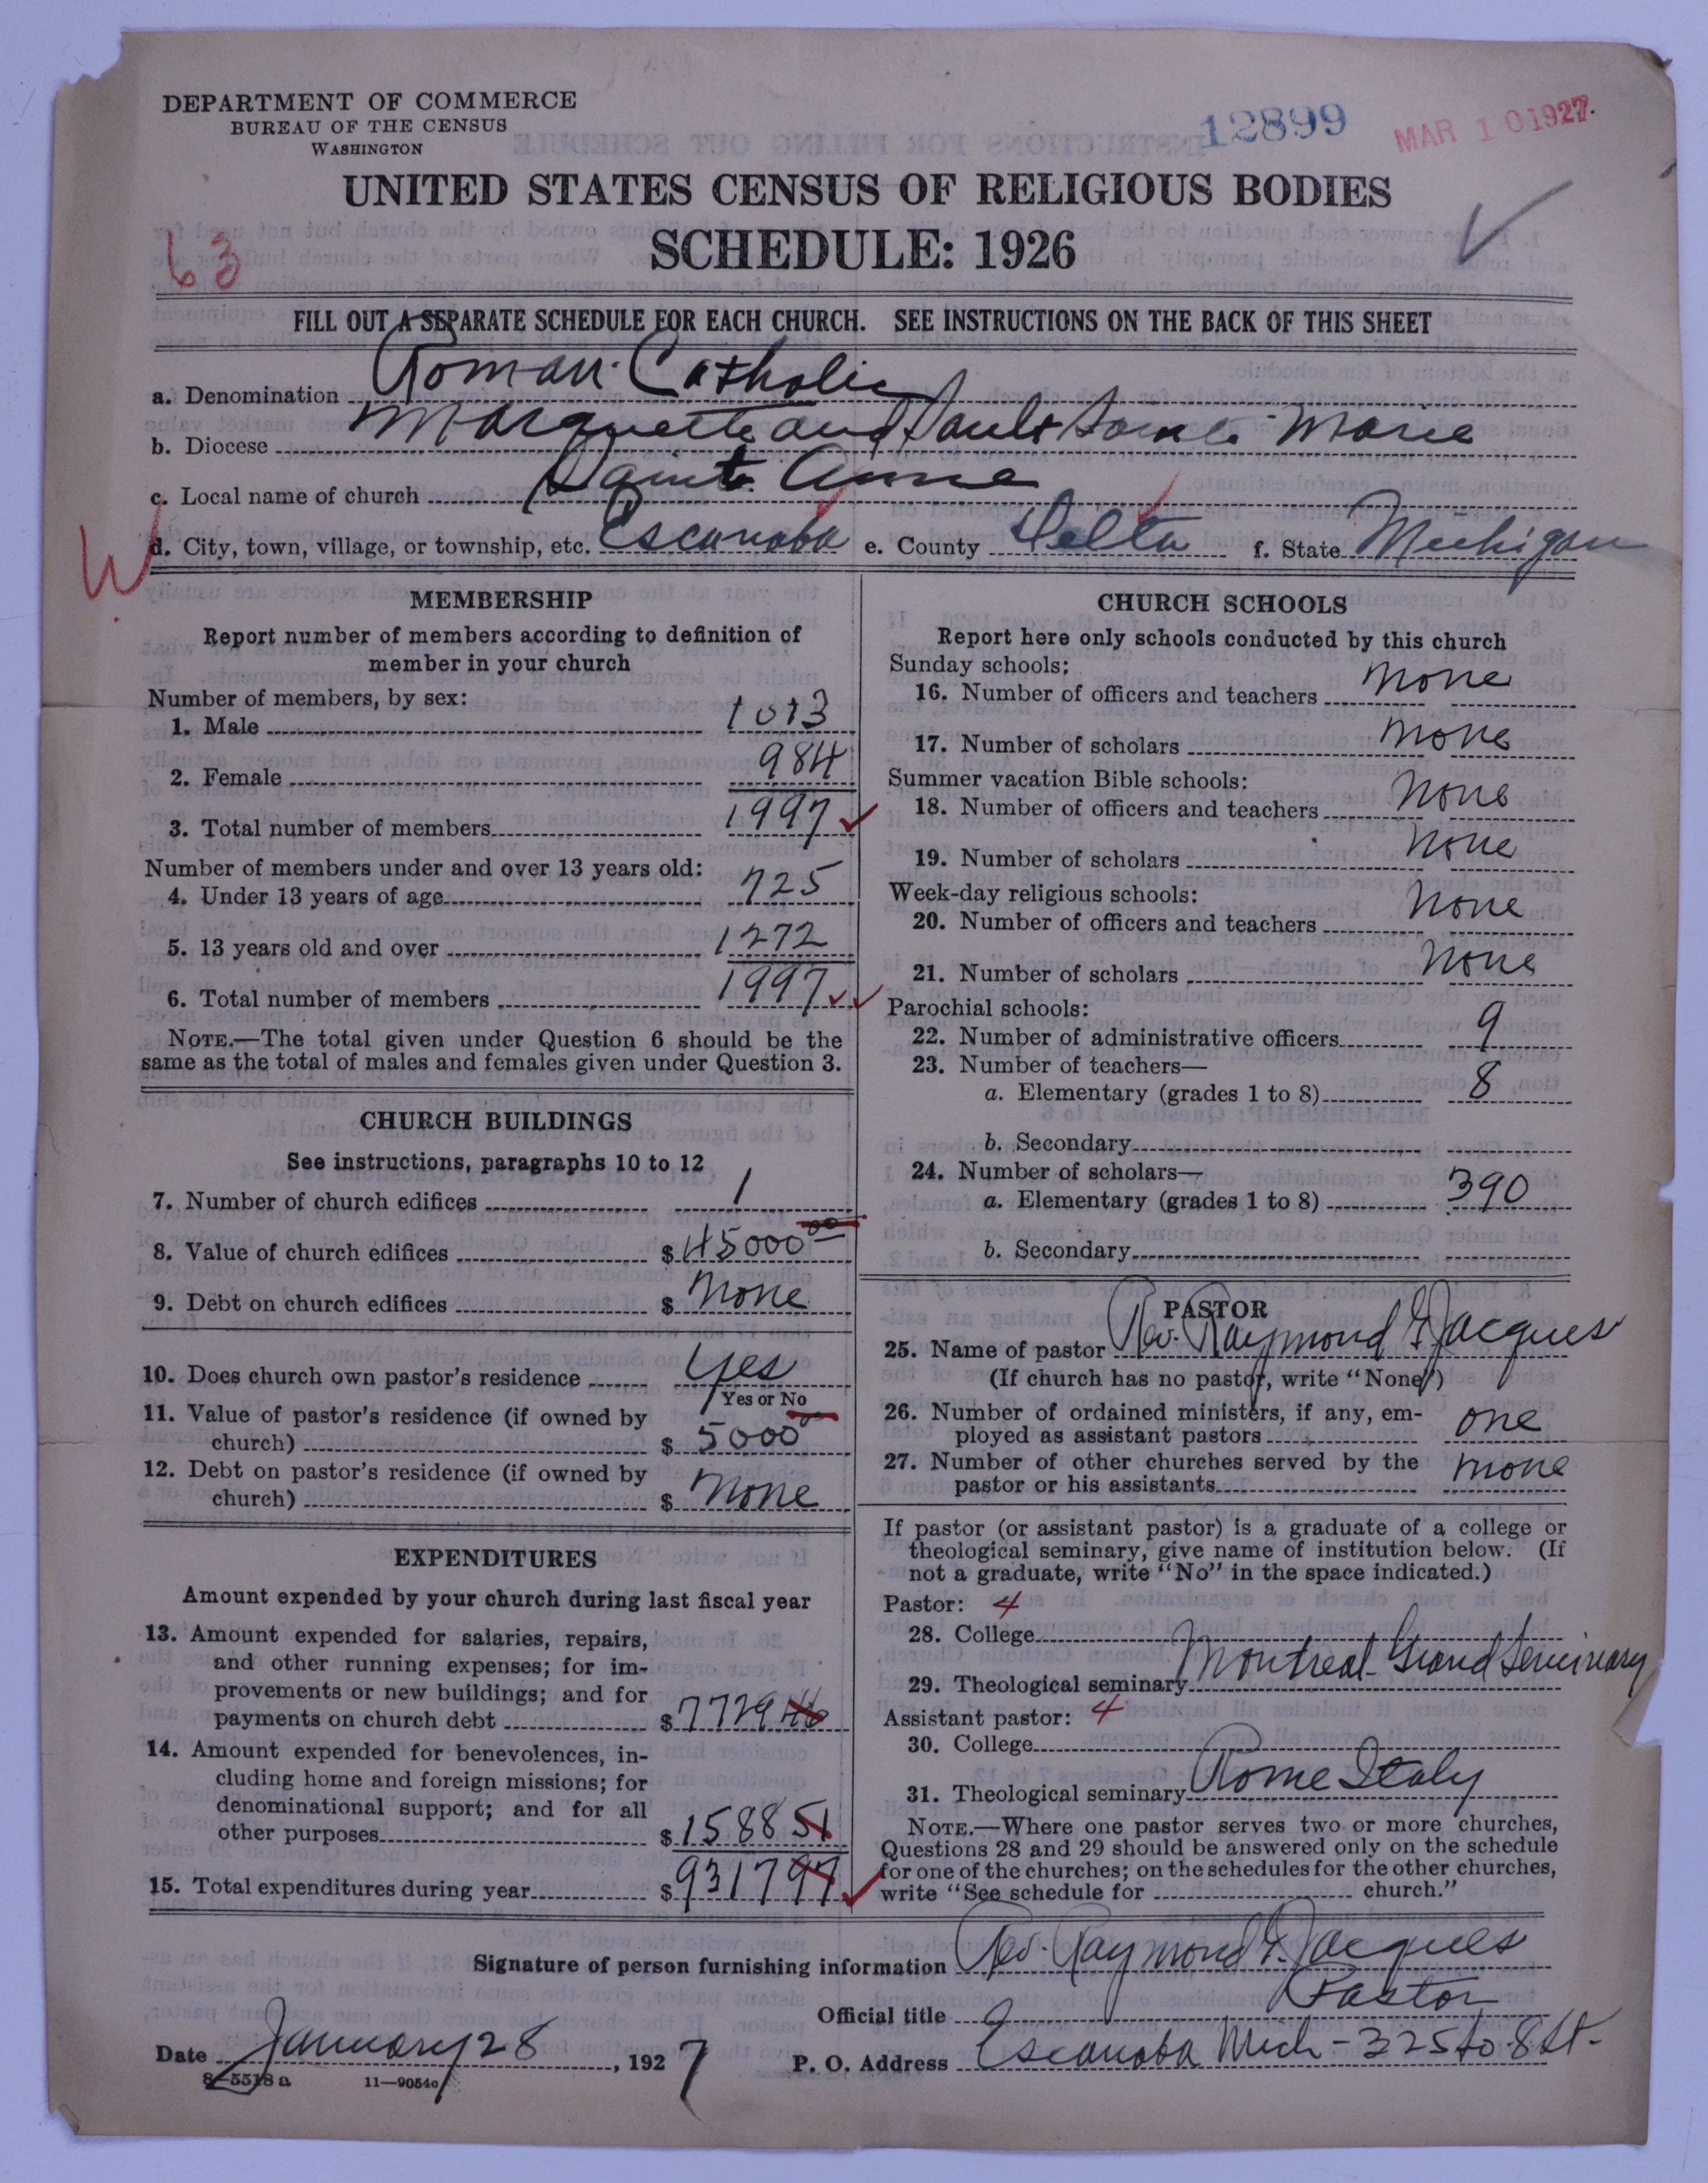 DEPARTMENT OF COMMERCE
BUREAU OF THE CENSUS
WASHINGTON
12899
MAR 10 1927.
UNITED STATES CENSUS OF RELIGIOUS BODIES
SCHEDULE: 1926
63
FILL OUT A SEPARATE SCHEDULE FOR EACH CHURCH. SEE INSTRUCTIONS ON THE BACK OF THIS SHEET
a. Denomination Roman Catholic
b. Diocese Marquette and Sault Marie
c. Local name of church Saint Anne
W
d. City, town, village, or township, etc. Escanaba e. County Delta f. State Michigan
MEMBERSHIP
Report number of members according to definition of
member in your church
Number of members, by sex:
1. Male 1013
2. Female 984
3. Total number of members 1997
Number of members under and over 13 years old:
4. Under 13 years of age 725
5. 13 years old and over 1272
6. Total number of members 1997
NOTE.—The total given under Question 6 should be the
same as the total of males and females given under Question 3.
CHURCH BUILDINGS
See instructions, paragraphs 10 to 12
7. Number of church edifices 1
8. Value of church edifices $ 45000 00
9. Debt on church edifices $ None
10. Does church own pastor's residence Yes
Yes or No
11. Value of pastor's residence (if owned by
church) $ 5000 00
12. Debt on pastor's residence (if owned by
church) $ None
EXPENDITURES
Amount expended by your church during last fiscal year
13. Amount expended for salaries, repairs,
and other running expenses; for im-
provements or new buildings; and for
payments on church debt $ 7729 46
14. Amount expended for benevolences, in-
cluding home and foreign missions; for
denominational support; and for all
other purposes $ 1588 51
15. Total expenditures during year $ 9317 97
CHURCH SCHOOLS
Report here only schools conducted by this church
Sunday schools:
16. Number of officers and teachers None
17. Number of scholars None
Summer vacation Bible schools:
18. Number of officers and teachers None
19. Number of scholars None
Week-day religious schools:
20. Number of officers and teachers None
21. Number of scholars None
Parochial schools:
22. Number of administrative officers 9
23. Number of teachers—
a. Elementary (grades 1 to 8) 8
b. Secondary
24. Number of scholars—
a. Elementary (grades 1 to 8) 390
b. Secondary
PASTOR
25. Name of pastor Rev. Raymond G. Jacques
(If church has no pastor, write "None")
26. Number of ordained ministers, if any, em-
ployed as assistant pastors one
27. Number of other churches served by the
pastor or his assistants none
If pastor (or assistant pastor) is a graduate of a college or
theological seminary, give name of institution below. (If
not a graduate, write "No" in the space indicated.)
Pastor: 4
28. College
29. Theological seminary Montreal Grand Seminary
Assistant pastor: 4
30. College
31. Theological seminary Rome Italy
NOTE.—Where one pastor serves two or more churches,
Questions 28 and 29 should be answered only on the schedule
for one of the churches; on the schedules for the other churches,
write "See schedule for church."
Signature of person furnishing information Rev. Raymond G. Jacques
Official title Pastor
Date January 28, 1927 P. O. Address Escanaba Mich - 325 So 8 St.
8—5518 a 11—9054c